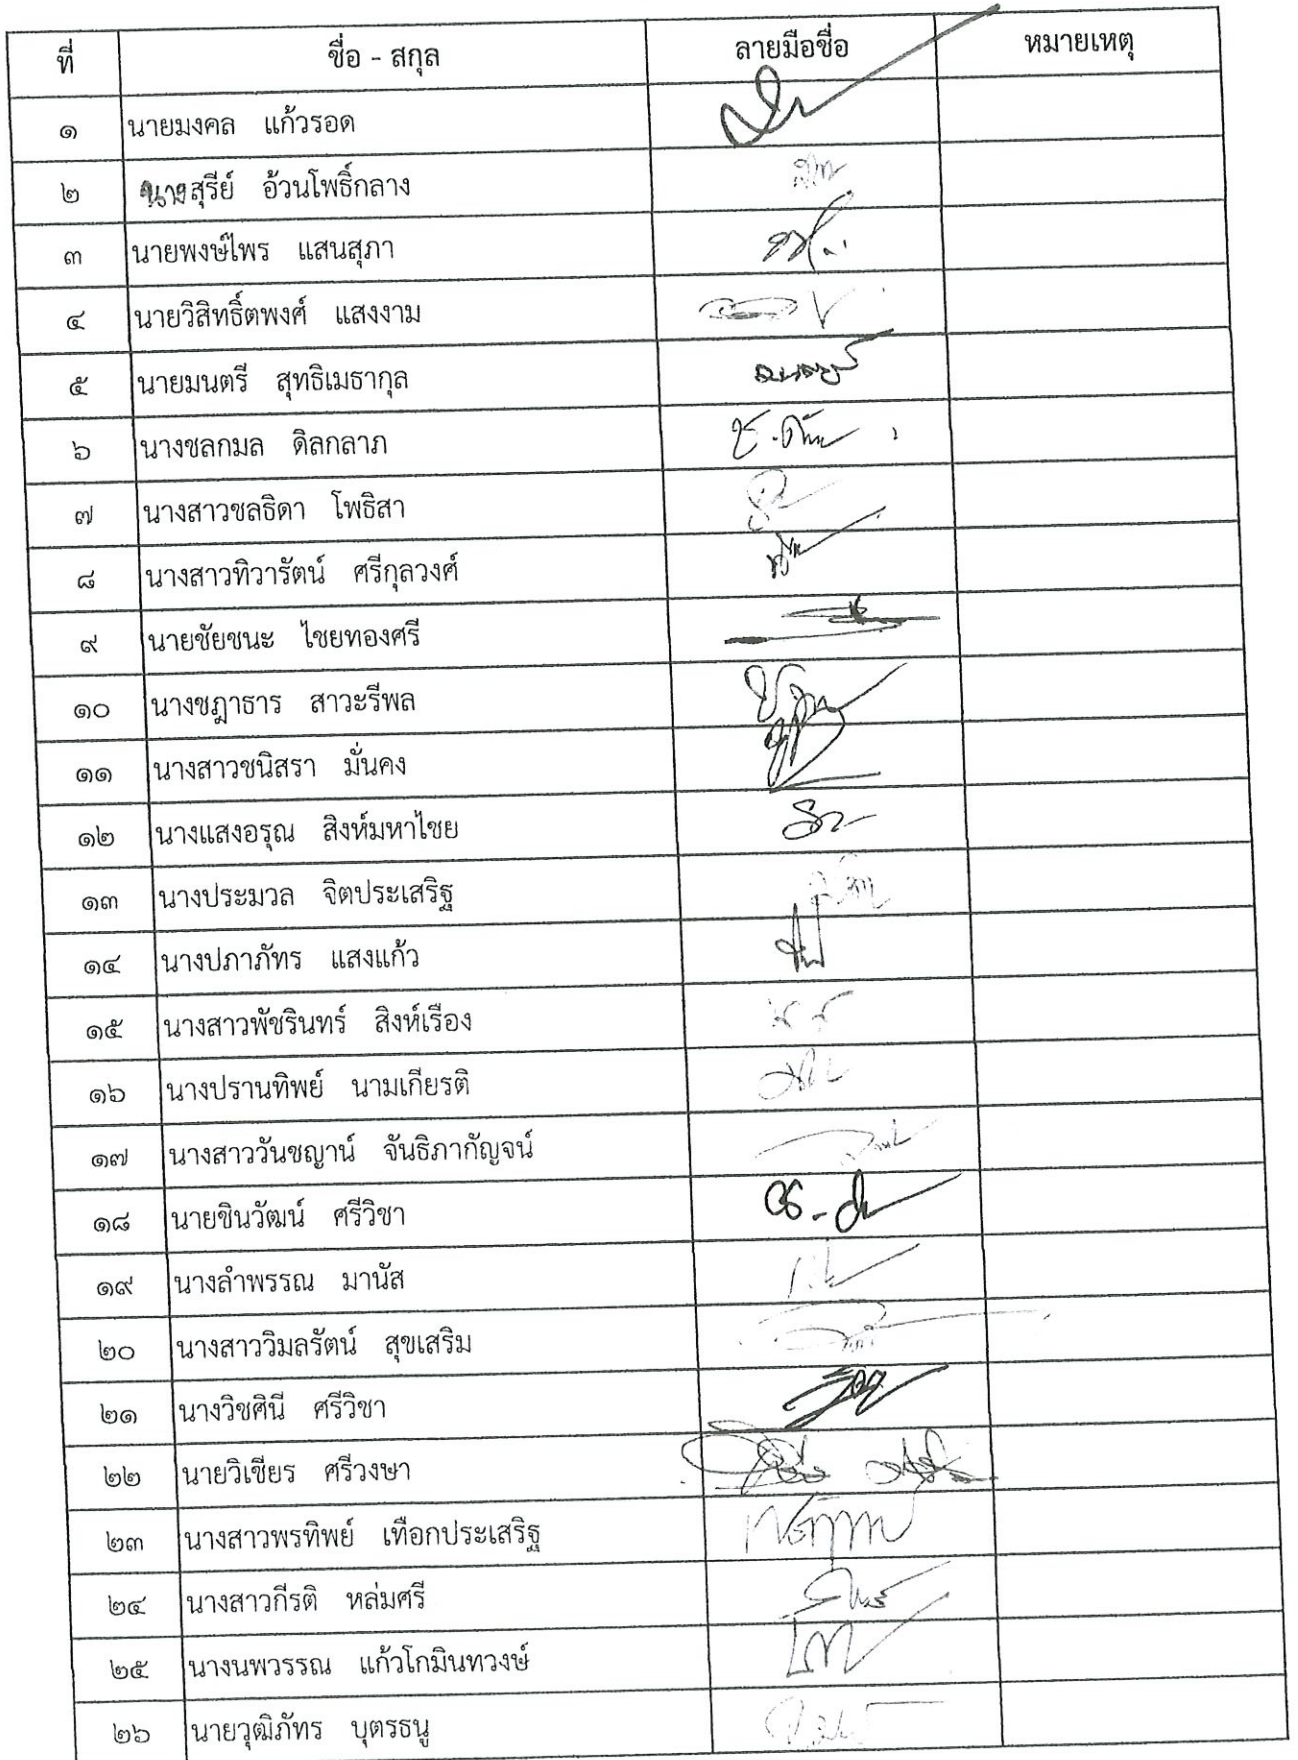 ที่ ชื่อ - สกุล ลายมือชื่อ หมายเหตุ
๑ นายมงคล แก้วรอด
๒ นางสุรีย์ อ้วนโพธิ์กลาง
๓ นายพงษ์ไพร แสนสุภา
๔ นายวิสิทธิ์ตพงศ์ แสงงาม
๕ นายมนตรี สุทธิเมธากุล
๖ นางชลกมล ดิลกลาภ
๗ นางสาวชลธิดา โพธิสา
๘ นางสาวทิวารัตน์ ศรีกุลวงศ์
๙ นายชัยชนะ ไชยทองศรี
๑๐ นางชฎาธาร สาวะรีพล
๑๑ นางสาวชนิสรา มั่นคง
๑๒ นางแสงอรุณ สิงห์มหาไชย
๑๓ นางประมวล จิตประเสริฐ
๑๔ นางปภาภัทร แสงแก้ว
๑๕ นางสาวพัชรินทร์ สิงห์เรือง
๑๖ นางปรานทิพย์ นามเกียรติ
๑๗ นางสาววันชญาน์ จันธิภากัญจน์
๑๘ นายชินวัฒน์ ศรีวิชา
๑๙ นางลำพรรณ มานัส
๒๐ นางสาววิมลรัตน์ สุขเสริม
๒๑ นางวิชศินี ศรีวิชา
๒๒ นายวิเชียร ศรีวงษา
๒๓ นางสาวพรทิพย์ เทือกประเสริฐ
๒๔ นางสาวกีรติ หล่มศรี
๒๕ นางนพวรรณ แก้วโกมินทวงษ์
๒๖ นายวุฒิภัทร บุตรธนู